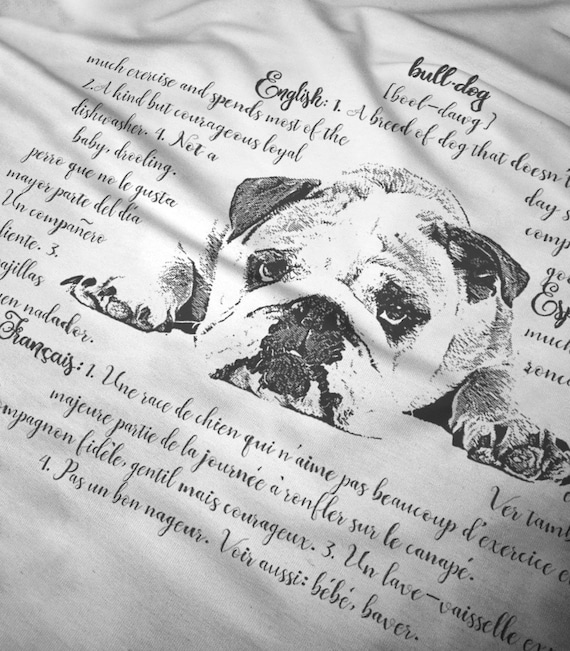 bull·dog
[bool-dawg]
English: 1. A breed of dog that doesn't
much exercise and spends most of the
day s
2.A kind but courageous loyal
comp
dishwasher. 4. Not a
baby, drooling.
Esp
perro que no le gusta
much
mayor parte del día
ronca
Un compañero
liente. 3.
ajillas
en nadador.
Ver tamb
Français: 1. Une race de chien qui n'aime pas beaucoup d'exercice e
majeure partie de la journée à ronfler sur le canapé.
ompagnon fidèle, gentil mais courageux. 3. Un lave-vaisselle ex
4. Pas un bon nageur. Voir aussi: bébé, baver.